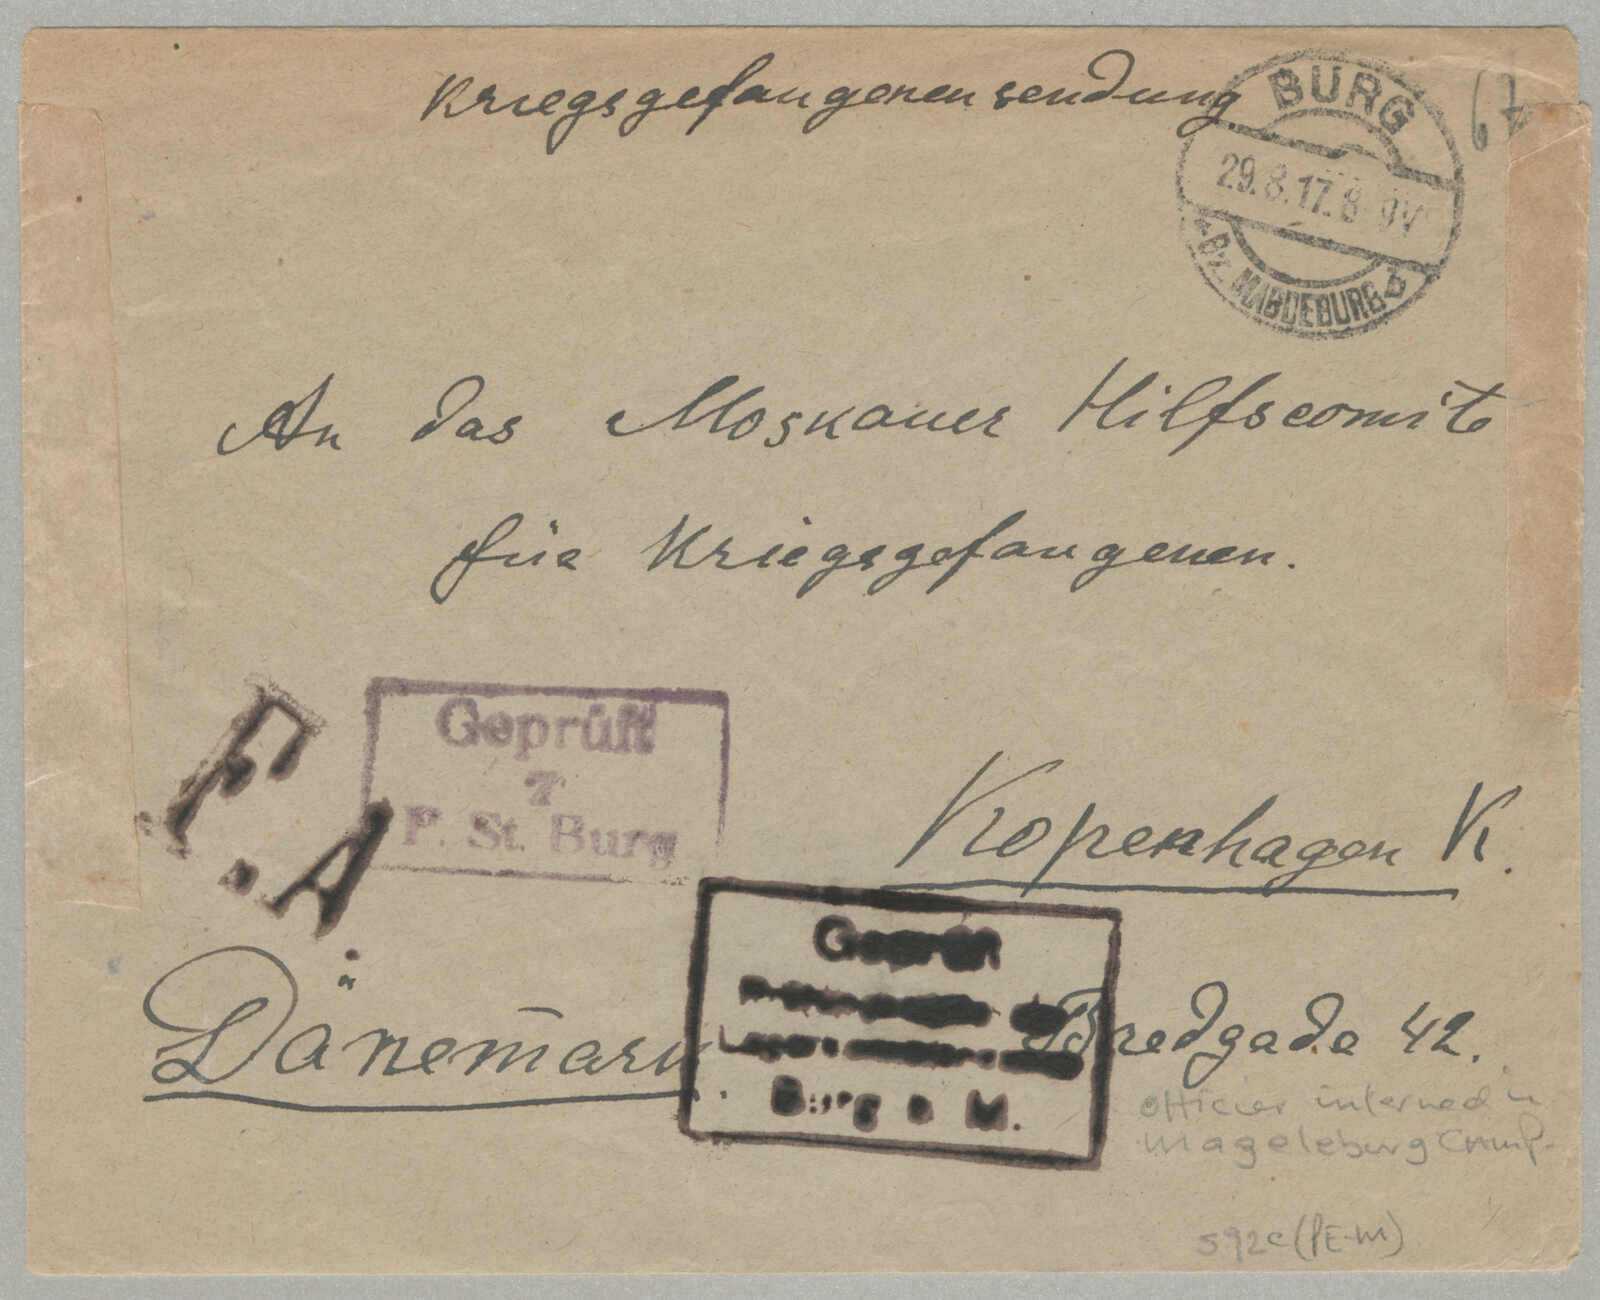 Kriegsgefangenensendung
BURG
29.8.17.8-9V
* Bz. MAGDEBURG b
67
An das Moskauer Hilfscomité
für Kriegsgefangenen.
Geprüft
7
P. St. Burg
F.A.
Kopenhagen K.
Geprüft
Burg b M.
Dänemark.
Bredgade 42.
Officier interned in
Mageleburg Camp-
592c (PE-M)